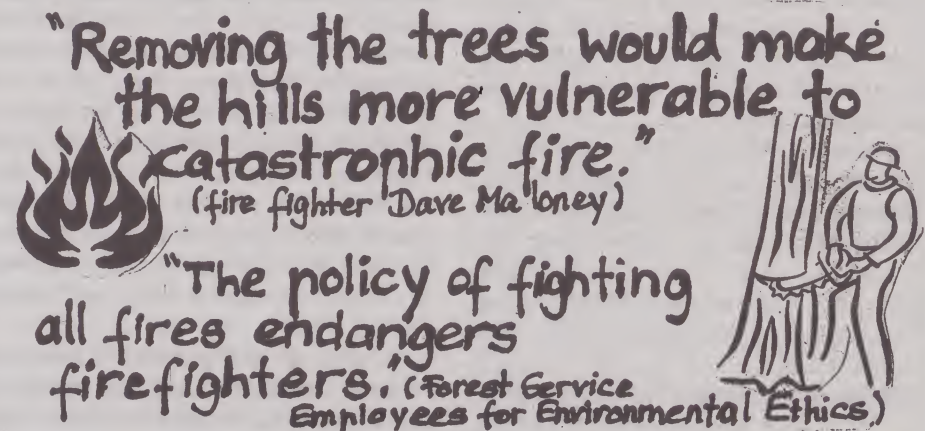 "Removing the trees would make
the hills more vulnerable to
catastrophic fire."
(fire fighter Dave Maloney)
"The policy of fighting
all fires endangers
firefighters." (Forest Service
Employees for Environmental Ethics)